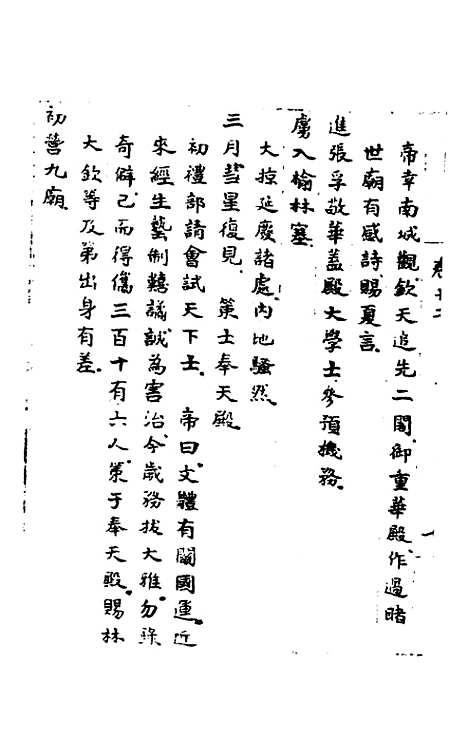 卷十二
帝幸南城觀欽天追先二閣御重華殿作過睹
世廟有感詩賜夏言
進張孚敬華蓋殿大學士參預機務
虜入榆林塞
大掠延慶諸處內地騷然
三月彗星復見　策士奉天殿
初禮部請會試天下士　帝曰文體有關國運近
來經生藝制轇轕誠為害治今歲務拔大雅勿錄
奇僻已而得儁三百十有六人策于奉天殿賜林
大欽等及第出身有差
初營九廟